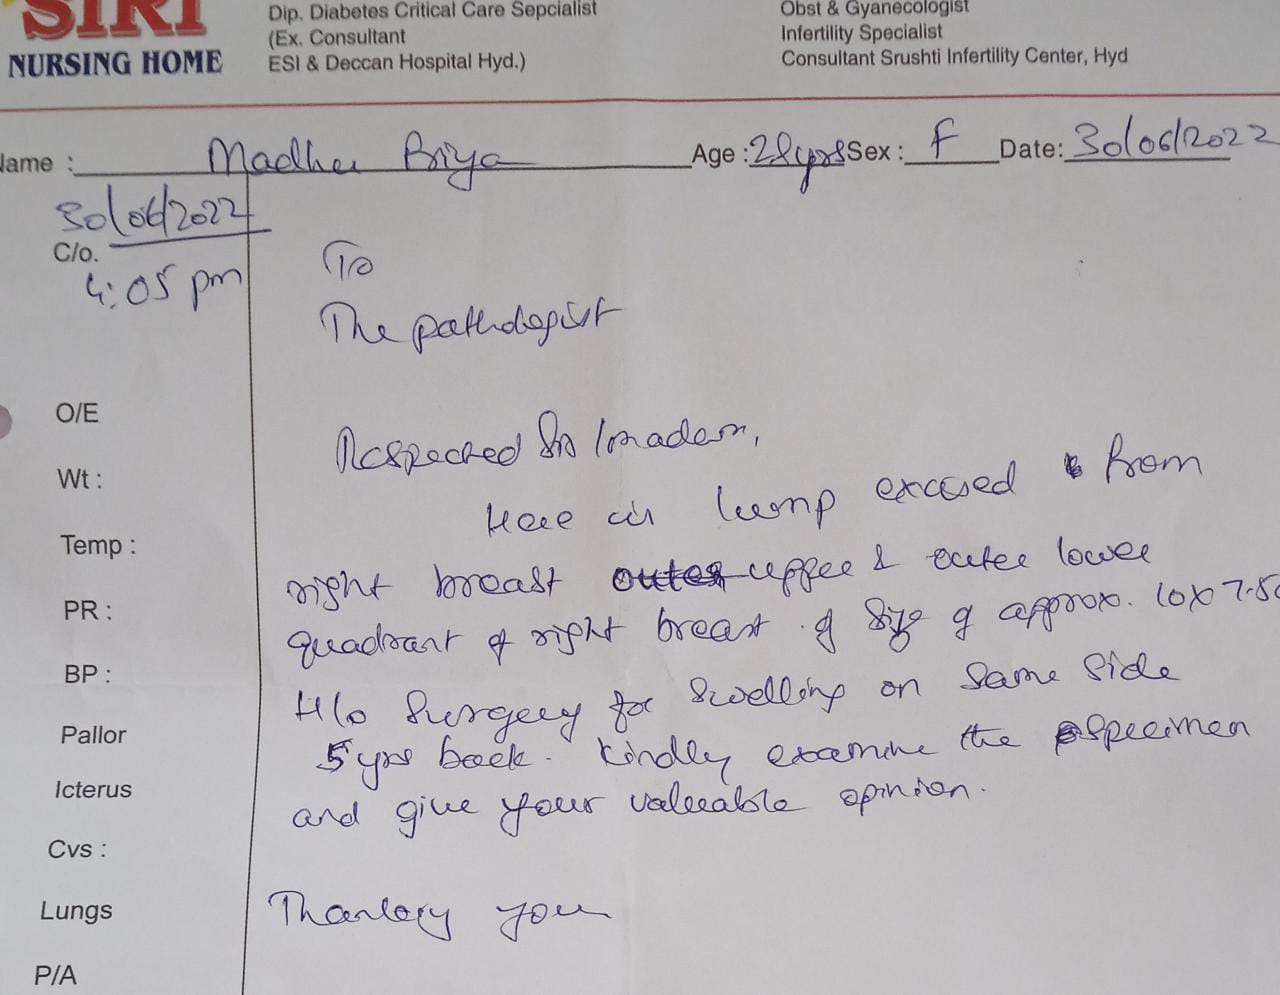 SIRI
NURSING HOME
Dip. Diabetes Critical Care Sepcialist
(Ex. Consultant
ESI & Deccan Hospital Hyd.)
Obst & Gyanecologist
Infertility Specialist
Consultant Srushti Infertility Center, Hyd
Name : Madhu Priya Age : 28yrs Sex : F Date: 30/06/2022
30/06/2022
C/o.
4:05 pm
To
The pathologist
O/E
Respected Sir/madam,
Wt :
Here is lump excised from
Temp :
right breast outer upper & outer lower
PR :
quadrant of right breast of size of approx. 10x7.5c
BP :
H/o Surgery for swelling on same side
Pallor
5yrs back. Kindly examine the specimen
Icterus
and give your valuable opinion.
Cvs :
Lungs
Thanking you
P/A